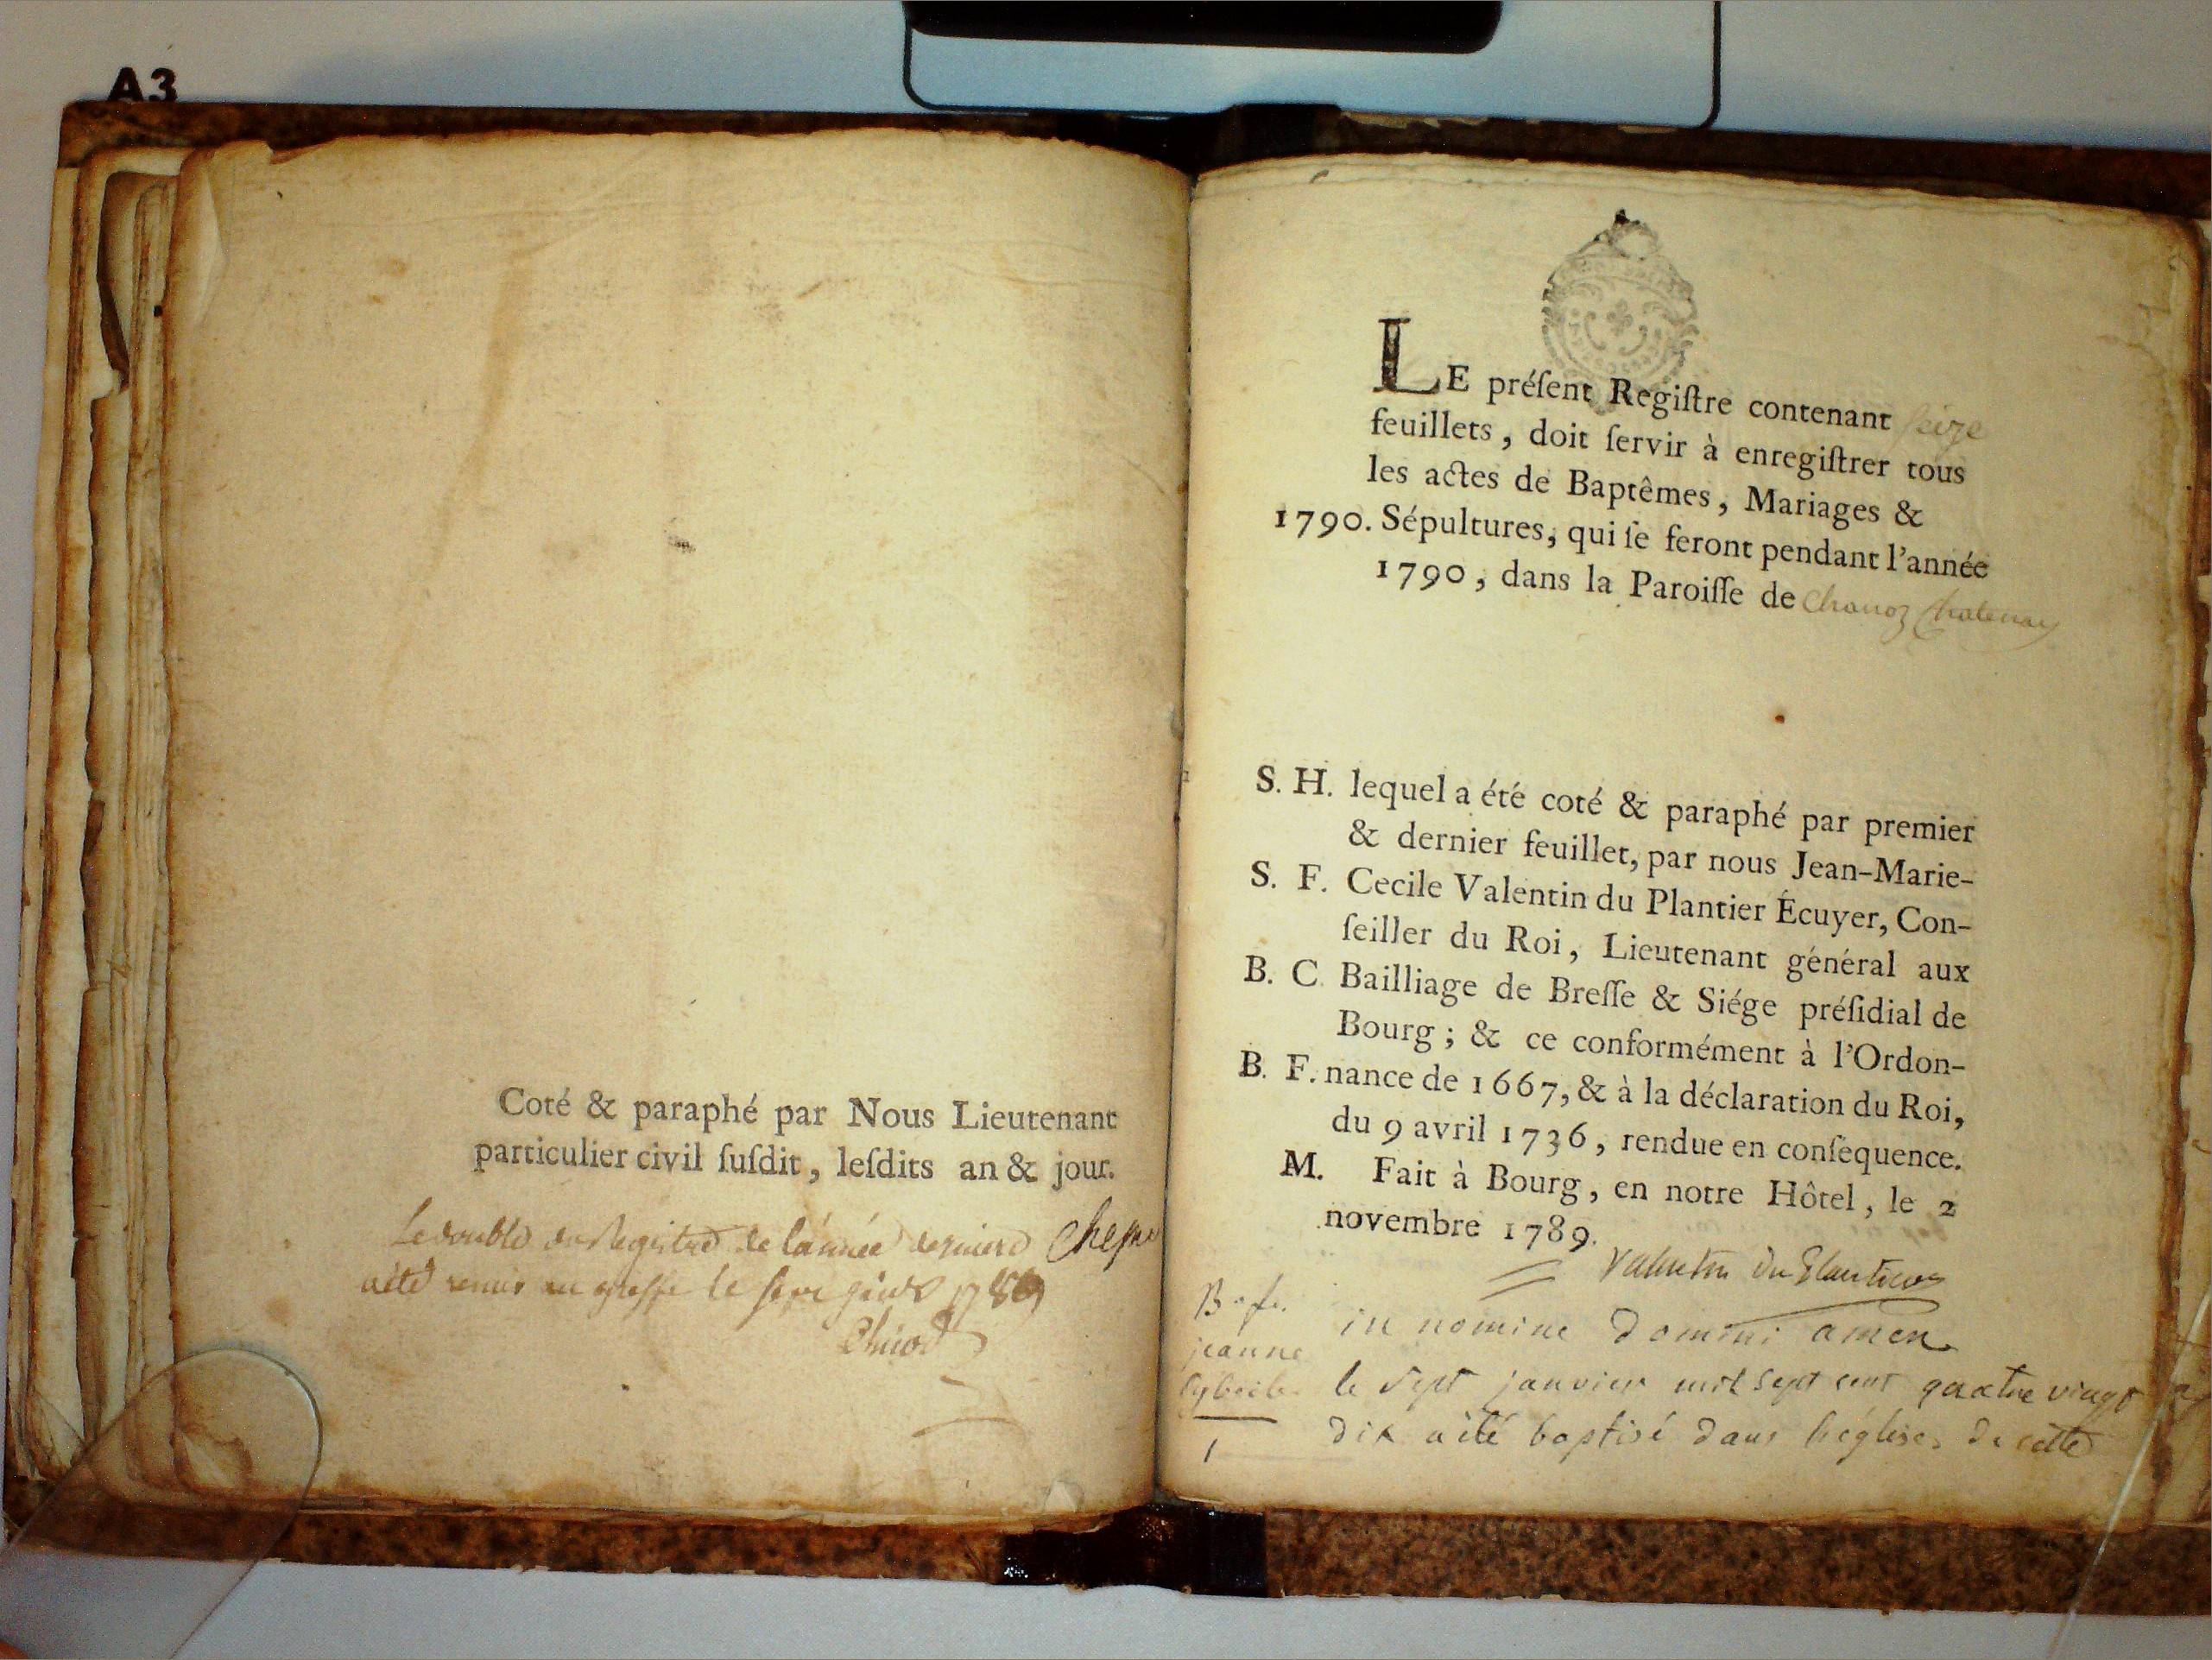 A3
Coté & paraphé par Nous Lieutenant
particulier civil ſuſdit, leſdits an & jour.
Le double du Registre de l'année derniere
a été remis au greffe le 1789
LE préſent Regiſtre contenant seize
feuillets, doit ſervir à enregiſtrer tous
les actes de Baptêmes, Mariages &
1790. Sépultures, qui ſe feront pendant l'année
1790, dans la Paroiſſe de Chanoz Chatenay
S. H. lequel a été coté & paraphé par premier
& dernier feuillet, par nous Jean-Marie-
S. F. Cecile Valentin du Plantier Écuyer, Con-
ſeiller du Roi, Lieutenant général aux
B. C. Bailliage de Breſſe & Siége préſidial de
Bourg; & ce conformément à l'Ordon-
B. F. nance de 1667, & à la déclaration du Roi,
du 9 avril 1736, rendue en conſequence.
M. Fait à Bourg, en notre Hôtel, le 2
novembre 1789.
Valentin du Plantier
B. f.
jeanne
1
in nomine Domini amen
le sept janvier mil sept cent quatre vingt
dix a été baptisé dans l'église de cette